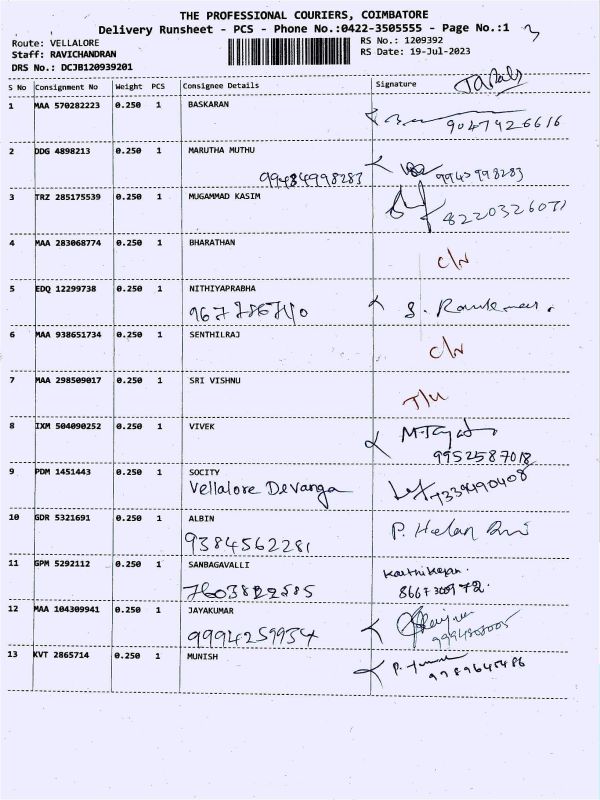 THE PROFESSIONAL COURIERS, COIMBATORE
Delivery Runsheet - PCS - Phone No.:0422-3505555 - Page No.:1 3
Route: VELLALORE RS No.: 1209392
Staff: RAVICHANDRAN RS Date: 19-Jul-2023
DRS No.: DCJB120939201
S No Consignment No Weight PCS Consignee Details Signature
1 MAA 570282223 0.250 1 BASKARAN
9047426616
2 DDG 4898213 0.250 1 MARUTHA MUTHU
99484998283
3 TRZ 285175539 0.250 1 MUGAMMAD KASIM
8220326071
4 MAA 283068774 0.250 1 BHARATHAN
C/N
5 EDQ 12299738 0.250 1 NITHIYAPRABHA
6 MAA 938651734 0.250 1 SENTHILRAJ
C/N
7 MAA 298509017 0.250 1 SRI VISHNU
8 IXM 504090252 0.250 1 VIVEK
9952587018
9 PDM 1451443 0.250 1 SOCITY
Vellalore Devanga
10 GDR 5321691 0.250 1 ALBIN
9384562281
11 GPM 5292112 0.250 1 SANBAGAVALLI
Karthikeyan.
12 MAA 104309941 0.250 1 JAYAKUMAR
9994259954
13 KVT 2865714 0.250 1 MUNISH
9789645486